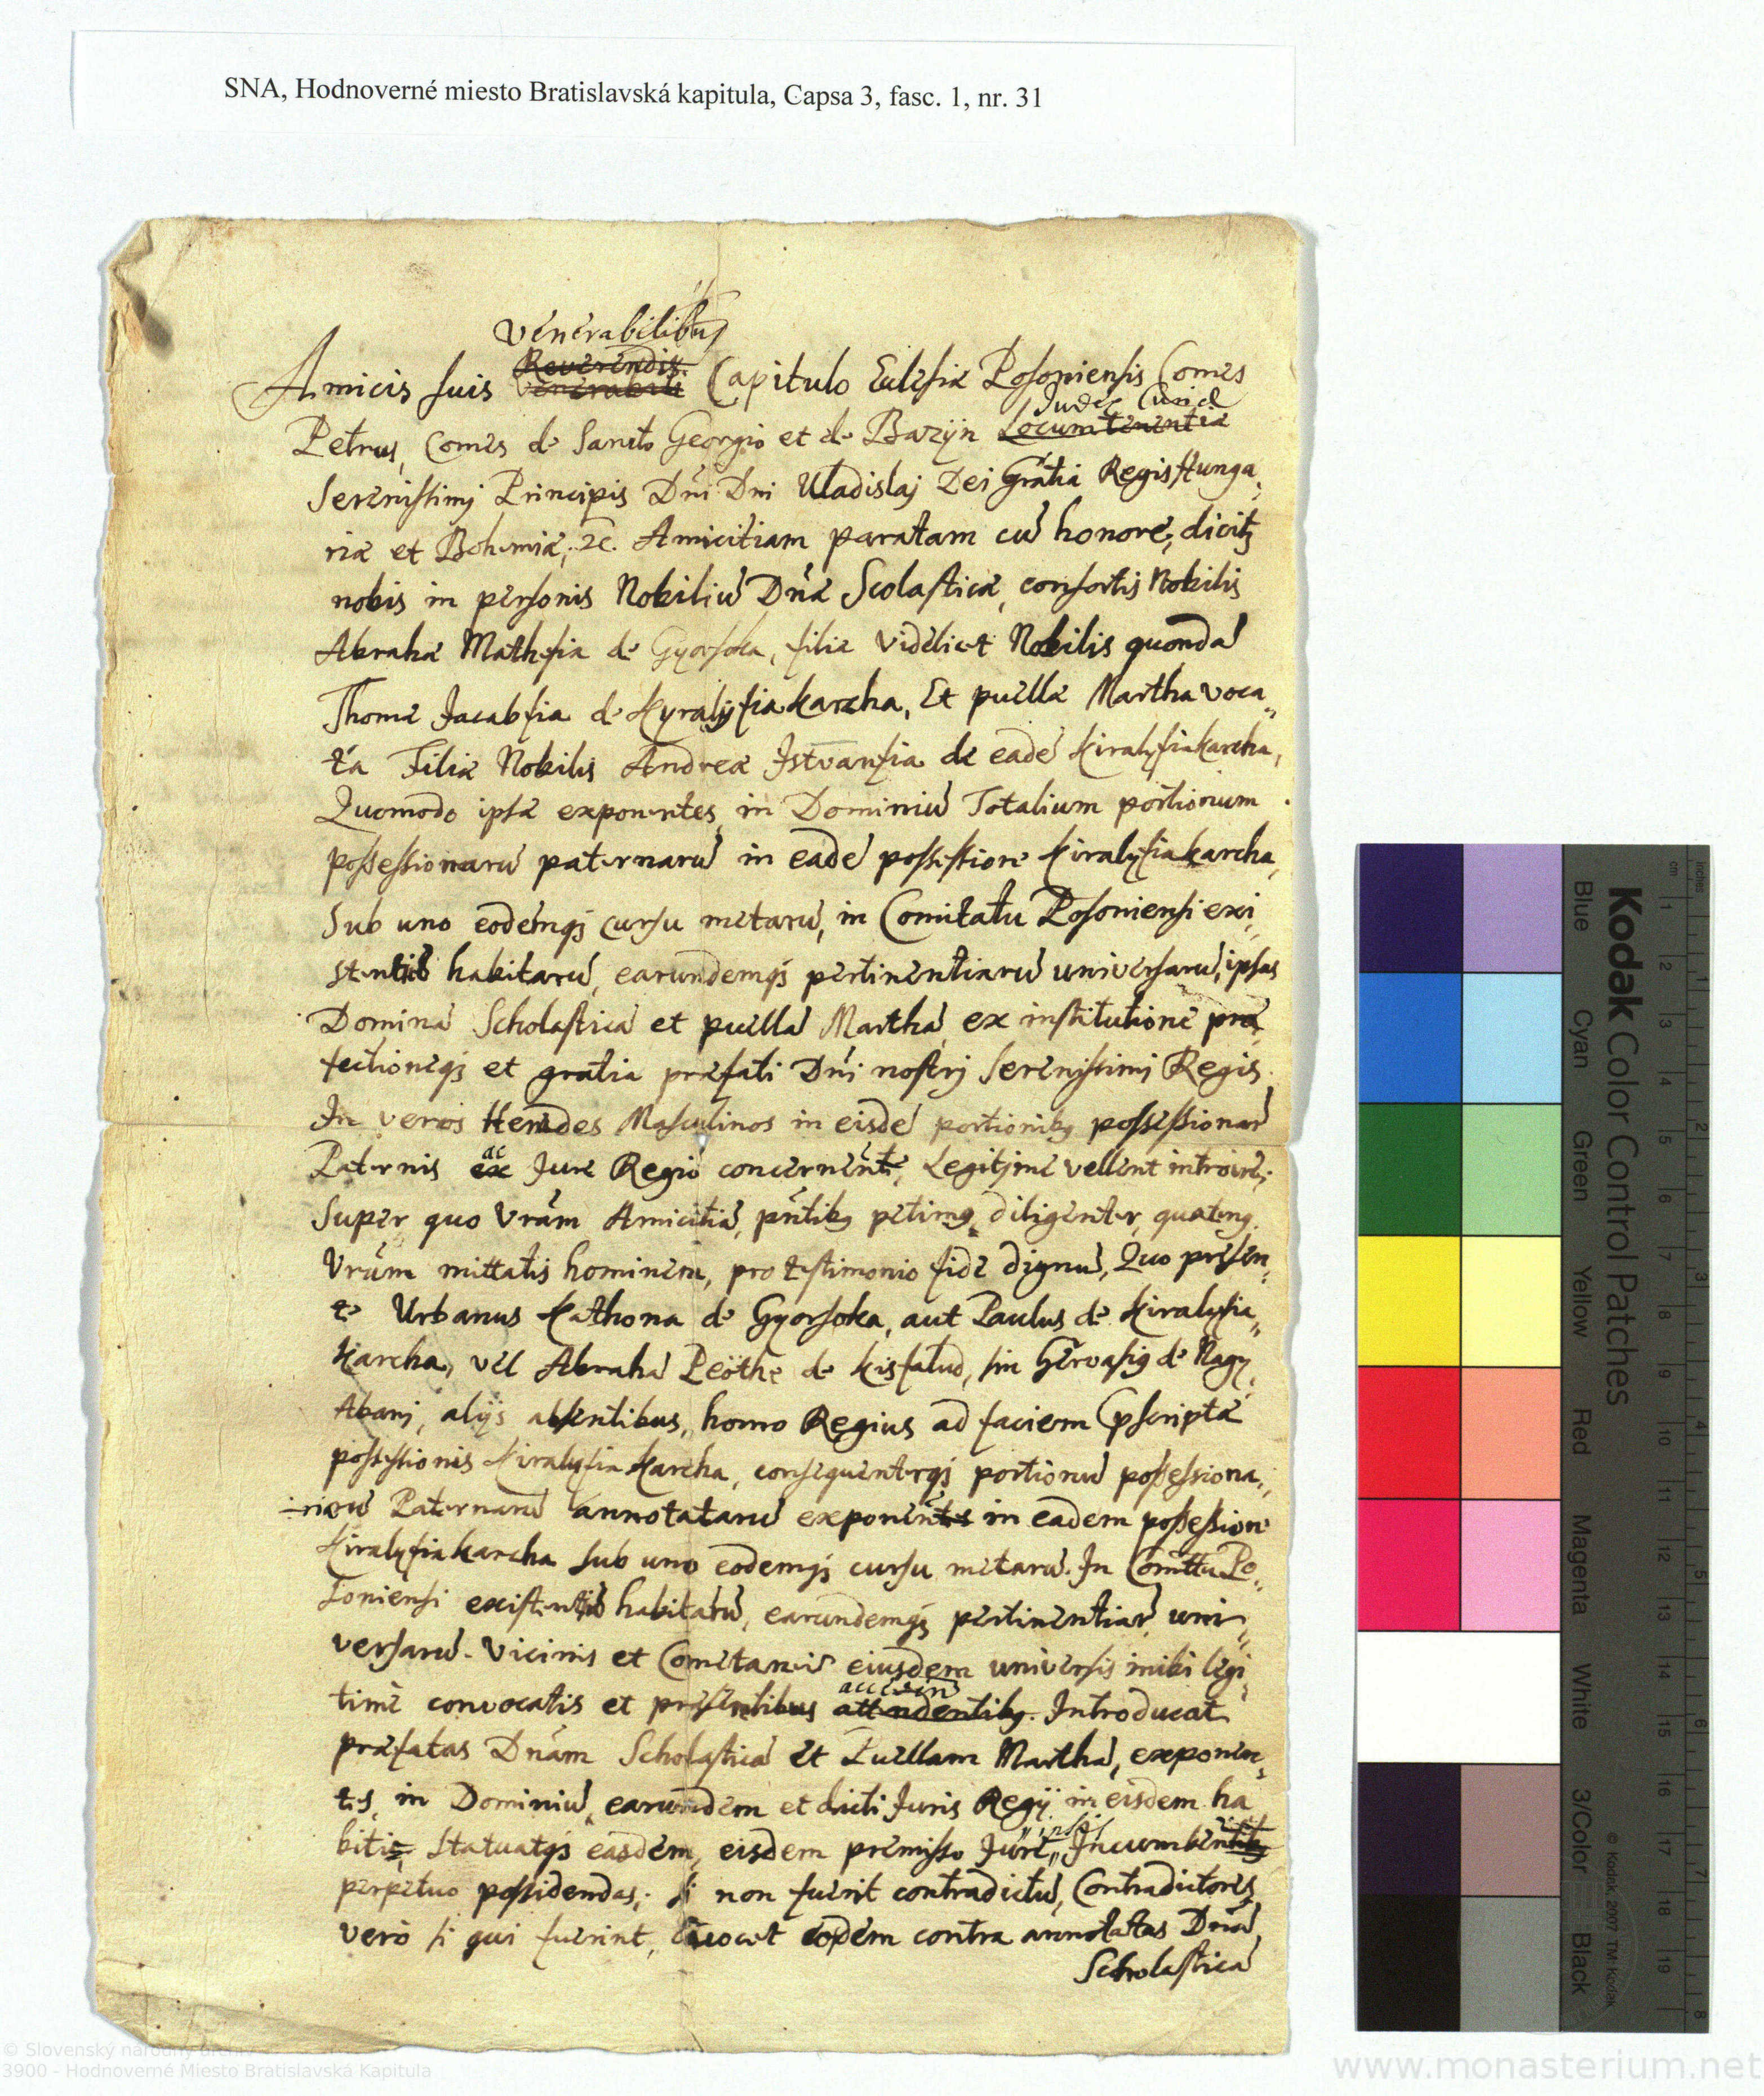 SNA, Hodnoverné miesto Bratislavská kapitula, Capsa 3, fasc. 1, nr. 31
Venerabilibus
Reverendis
Amicis suis Venerabili Capitulo Eclesiæ Posoniensis Comes
Judex Curiæ
Petrus, Comes de Sancto Georgio et de Bazÿn Locumtenentiæ
Serenissimj Principis Dńi Dni Uladislaj Dei Grátia Regis Hunga,
riæ et Bohemiæ, &c. Amicitiam paratam cū honore, dicitꝫ
nobis in personis Nobiliū Dńæ Scolasticæ, consortis Nobilis
Abrahæ Mathefia de Gyorsoka, filiæ videlicet Nobilis quondā
Thomæ Jacabfia de Kyralÿfiakarcha, Et puellæ Martha voca,,
tá Filiæ Nobilis Andreæ Istvanfia de eadē Kiralyfiakarcha,
Quomodo ipsæ exponentes, in Dominiū Totalium portionum
possessionarū paternarū in eadē possessione Kiralyfiakarcha,
Sub uno eodémqꝫ cursu metarū, in Comitatu Posoniensi exi,,
stentiū habitarū, earundemqꝫ pertinentiarū universarū, ipsas
Dominā Scholasticā et puellā Marthā, ex institutione præ,
fectioneqꝫ et gratia præfati Dńi nostrj Serenissimj Regis
In veros Heredes Masculinos in eisdē portionibꝫ possessionar
ac
Paternis ex Jure Regio concernent, Legitjme vellent introire;
Super quo Vrám Amicitiā, pńtibꝫ petimꝰ diligenter, quatenꝰ
Vrúm mittatis hominem, pro testimonio fide dignū, Quo præsen,,
te Urbanus Kathona de Gyorsoka, aut Paulus de Kiralyfia,,
karcha, vel Abrahā Peöthe de Kisfalud, sin Gervasiꝰ de Nagy,
Abanj, alÿs absentibus, homo Regius ad faciem
possessionis Kiralyfia Karcha, consequenterqꝫ portionū possessiona,,
riarū Paternarū annotatarū exponentes in eadem possession
Kiralyfiakarcha sub uno eodemqꝫ cursu metarū. In Comittu Po,,
soniensi existentiū habitarū, earundemqꝫ pertinentiar, uni,,
versarū. Vicinis et Cometaneis eiusdem universis inibi legi,
timè convocatis et præsentibus attendentibꝫ. Introducat
præfatas Dnám Scholasticā et Puellam Marthā, exponen,,
tes, in Dominiū, earundem et dicti Juris Regÿ in eisdem ha
ipsis
bitis, Statuatqꝫ easdem, eisdem præmisso Jure,, Incumbentibꝫ
perpetuo possidendas; si non fuerit contradictū, Contradictores
verò si qui fuerint, Evocet eosdem contra annotatas Dnā
Scholasticā
Kodak Color Control Patches
Blue Cyan Green Yellow Red Magenta White 3/Color Black
© Kodak, 2007 TM: Kodak
inches 1 2 3 4 5 6 7 8
cm 1 2 3 4 5 6 7 8 9 10 11 12 13 14 15 16 17 18 19
© Slovenský národný archív
3900 - Hodnoverné Miesto Bratislavská Kapitula
www.monasterium.net